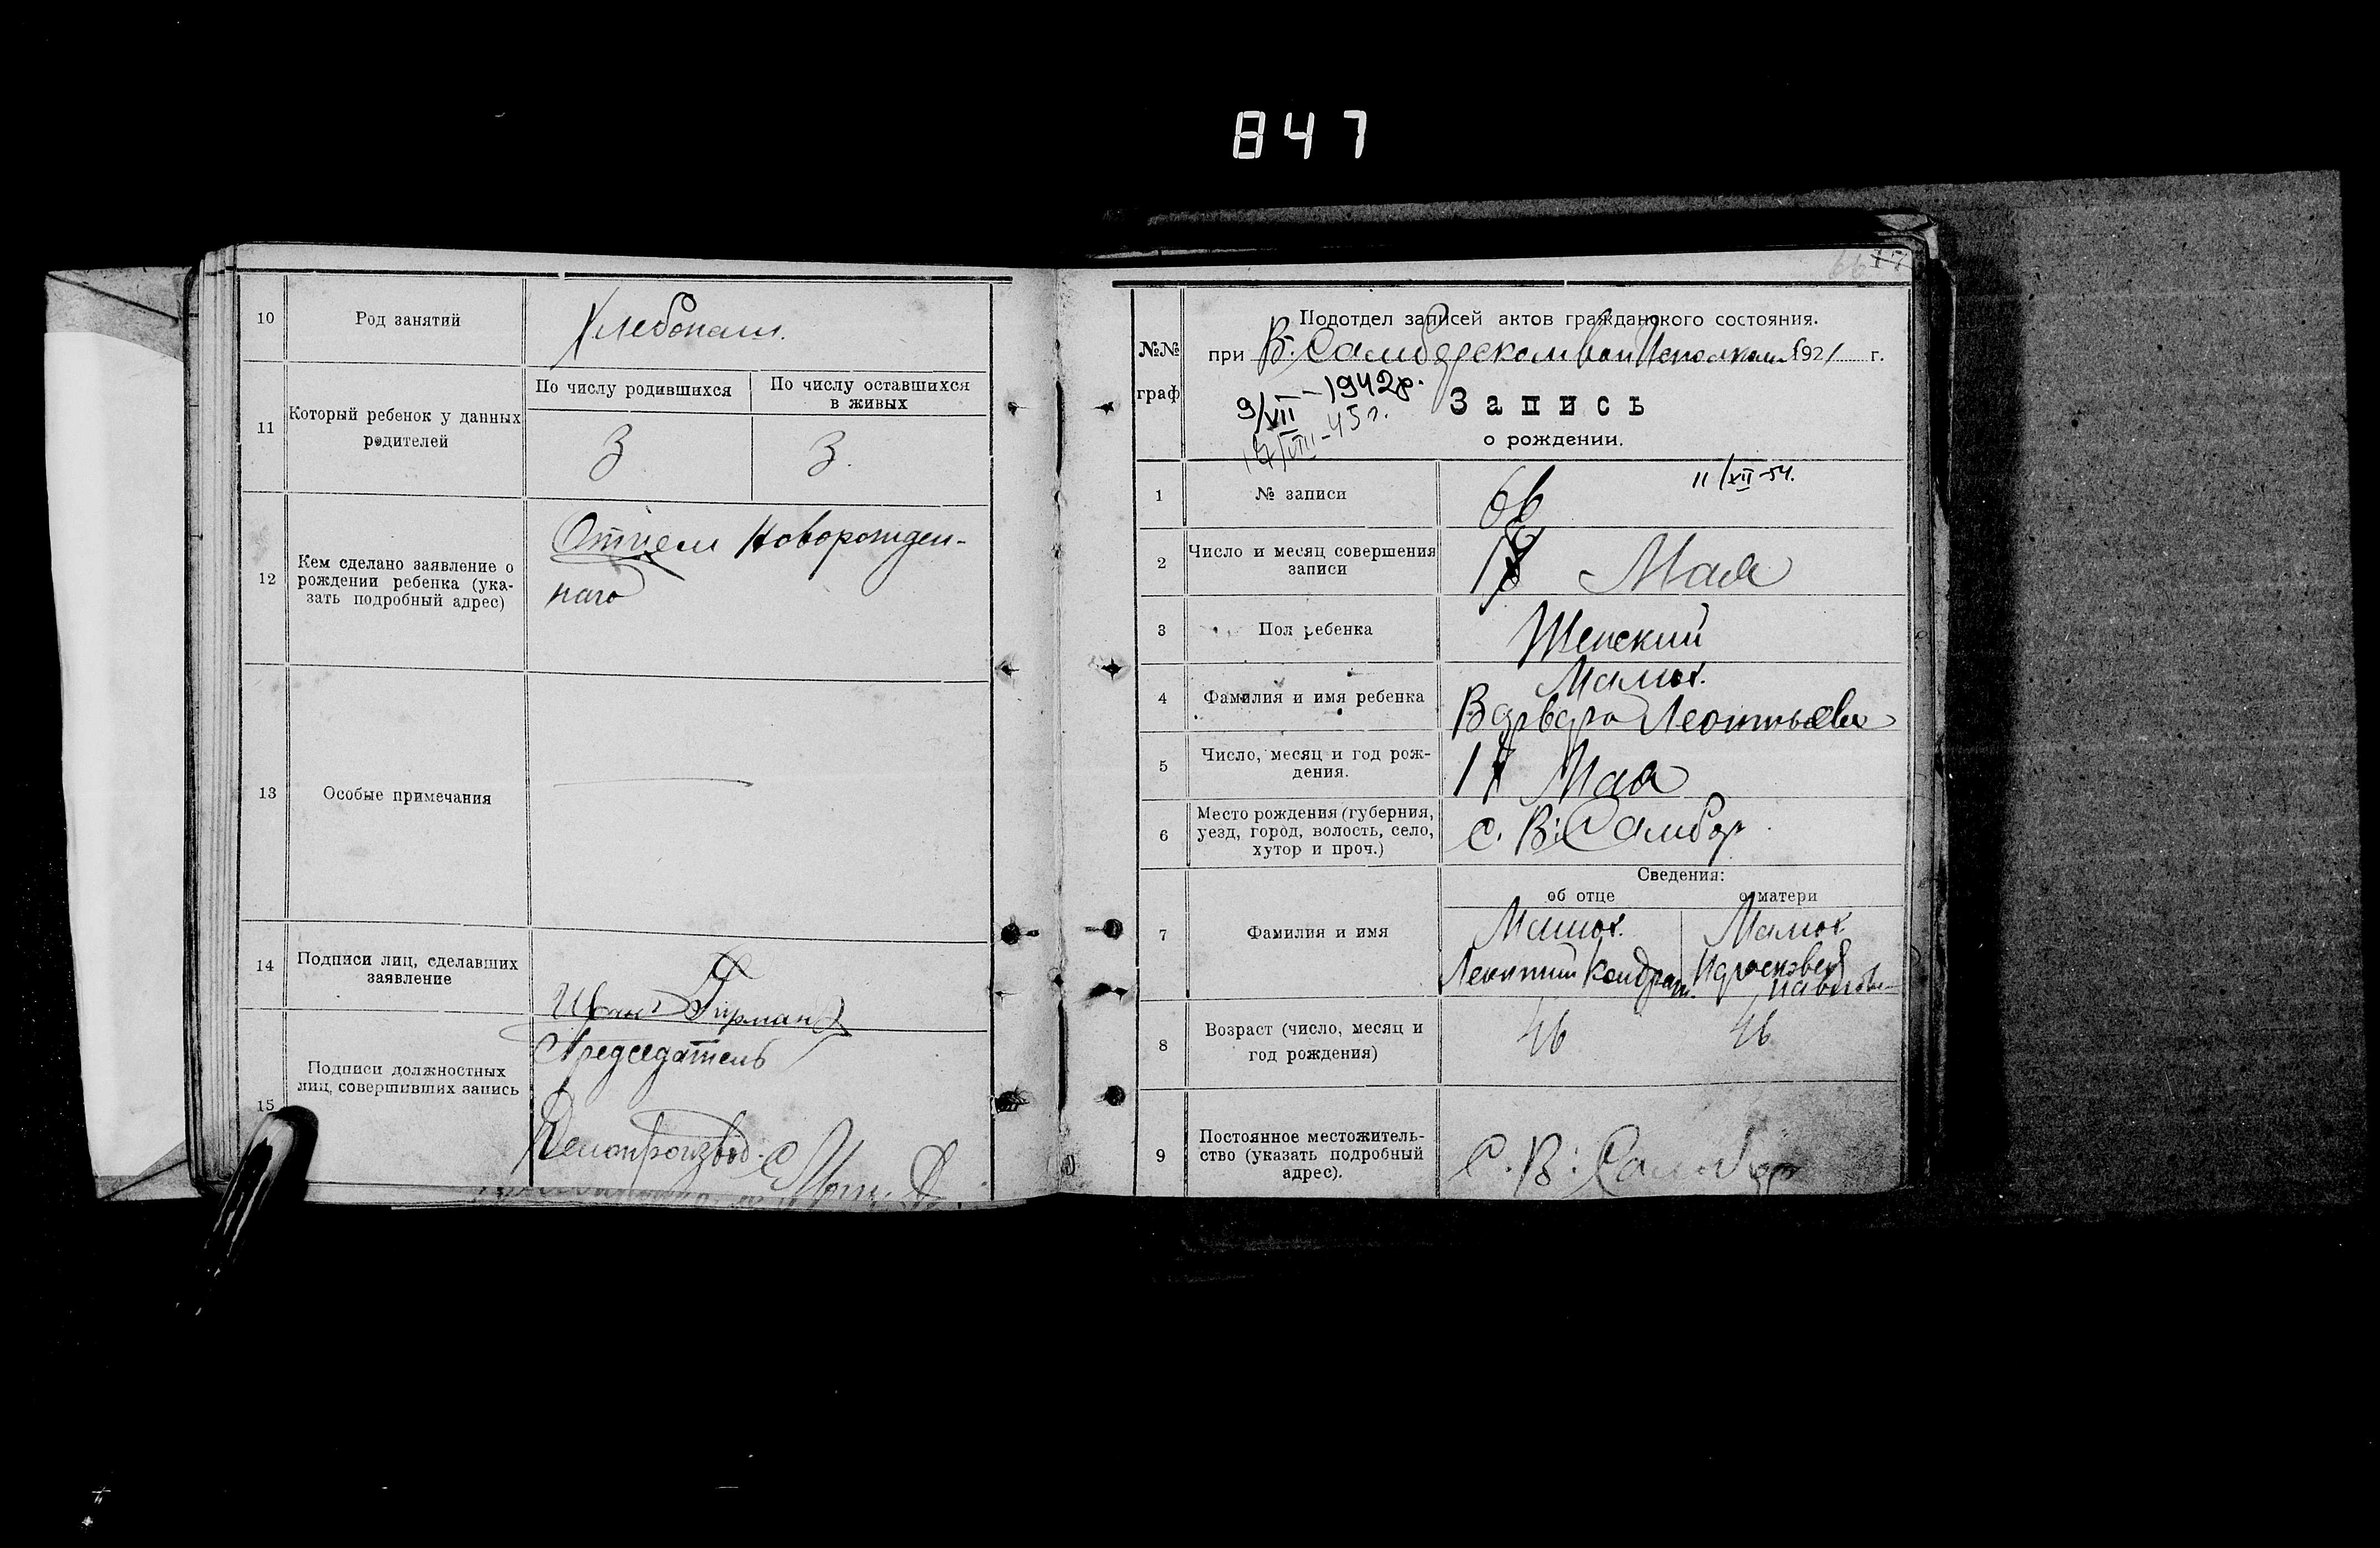 847
10
Род занятий
Хлебопаш.
11
Который ребенок у данных
родителей
По числу родившихся
По числу оставшихся
в живых
3
3.
12
Кем сделано заявление о
рождении ребенка (ука-
зать подробный адрес)
Отцем Новорожден-
наго
13
Особые примечания
14
Подписи лиц, сделавших
заявление
Иван
15
Подписи должностных
лиц, совершивших запись
Председатель
Делопроизвод.
№№
граф
Подотдел записей актов гражданского состояния.
при В. Самборском Вол Исполкоме 1921 г.
9/VII-1942г.
VIII-45г.
Запись
о рождении.
1
№ записи
66
11/XII-54.
2
Число и месяц совершения
записи
Мая
3
Пол ребенка
Женский
4
Фамилия и имя ребенка
Варвара Леонтьева
5
Число, месяц и год рож-
дения.
Мая
6
Место рождения (губерния,
уезд, город, волость, село,
хутор и проч.)
с. В: Самбор
Сведения:
об отце
о матери
7
Фамилия и имя
Леонтий Кондрат.
Парасковея
Павлова
8
Возраст (число, месяц и
год рождения)
46
46
9
Постоянное местожитель-
ство (указать подробный
адрес).
С. В: Самбор